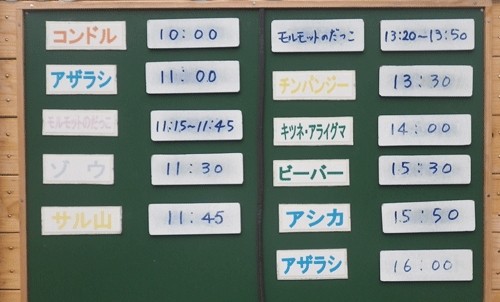 コンドル 10:00
アザラシ 11:00
モルモットのだっこ 11:15~11:45
ゾウ 11:30
サル山 11:45
モルモットのだっこ 13:20~13:50
チンパンジー 13:30
キツネ・アライグマ 14:00
ビーバー 15:30
アシカ 15:50
アザラシ 16:00